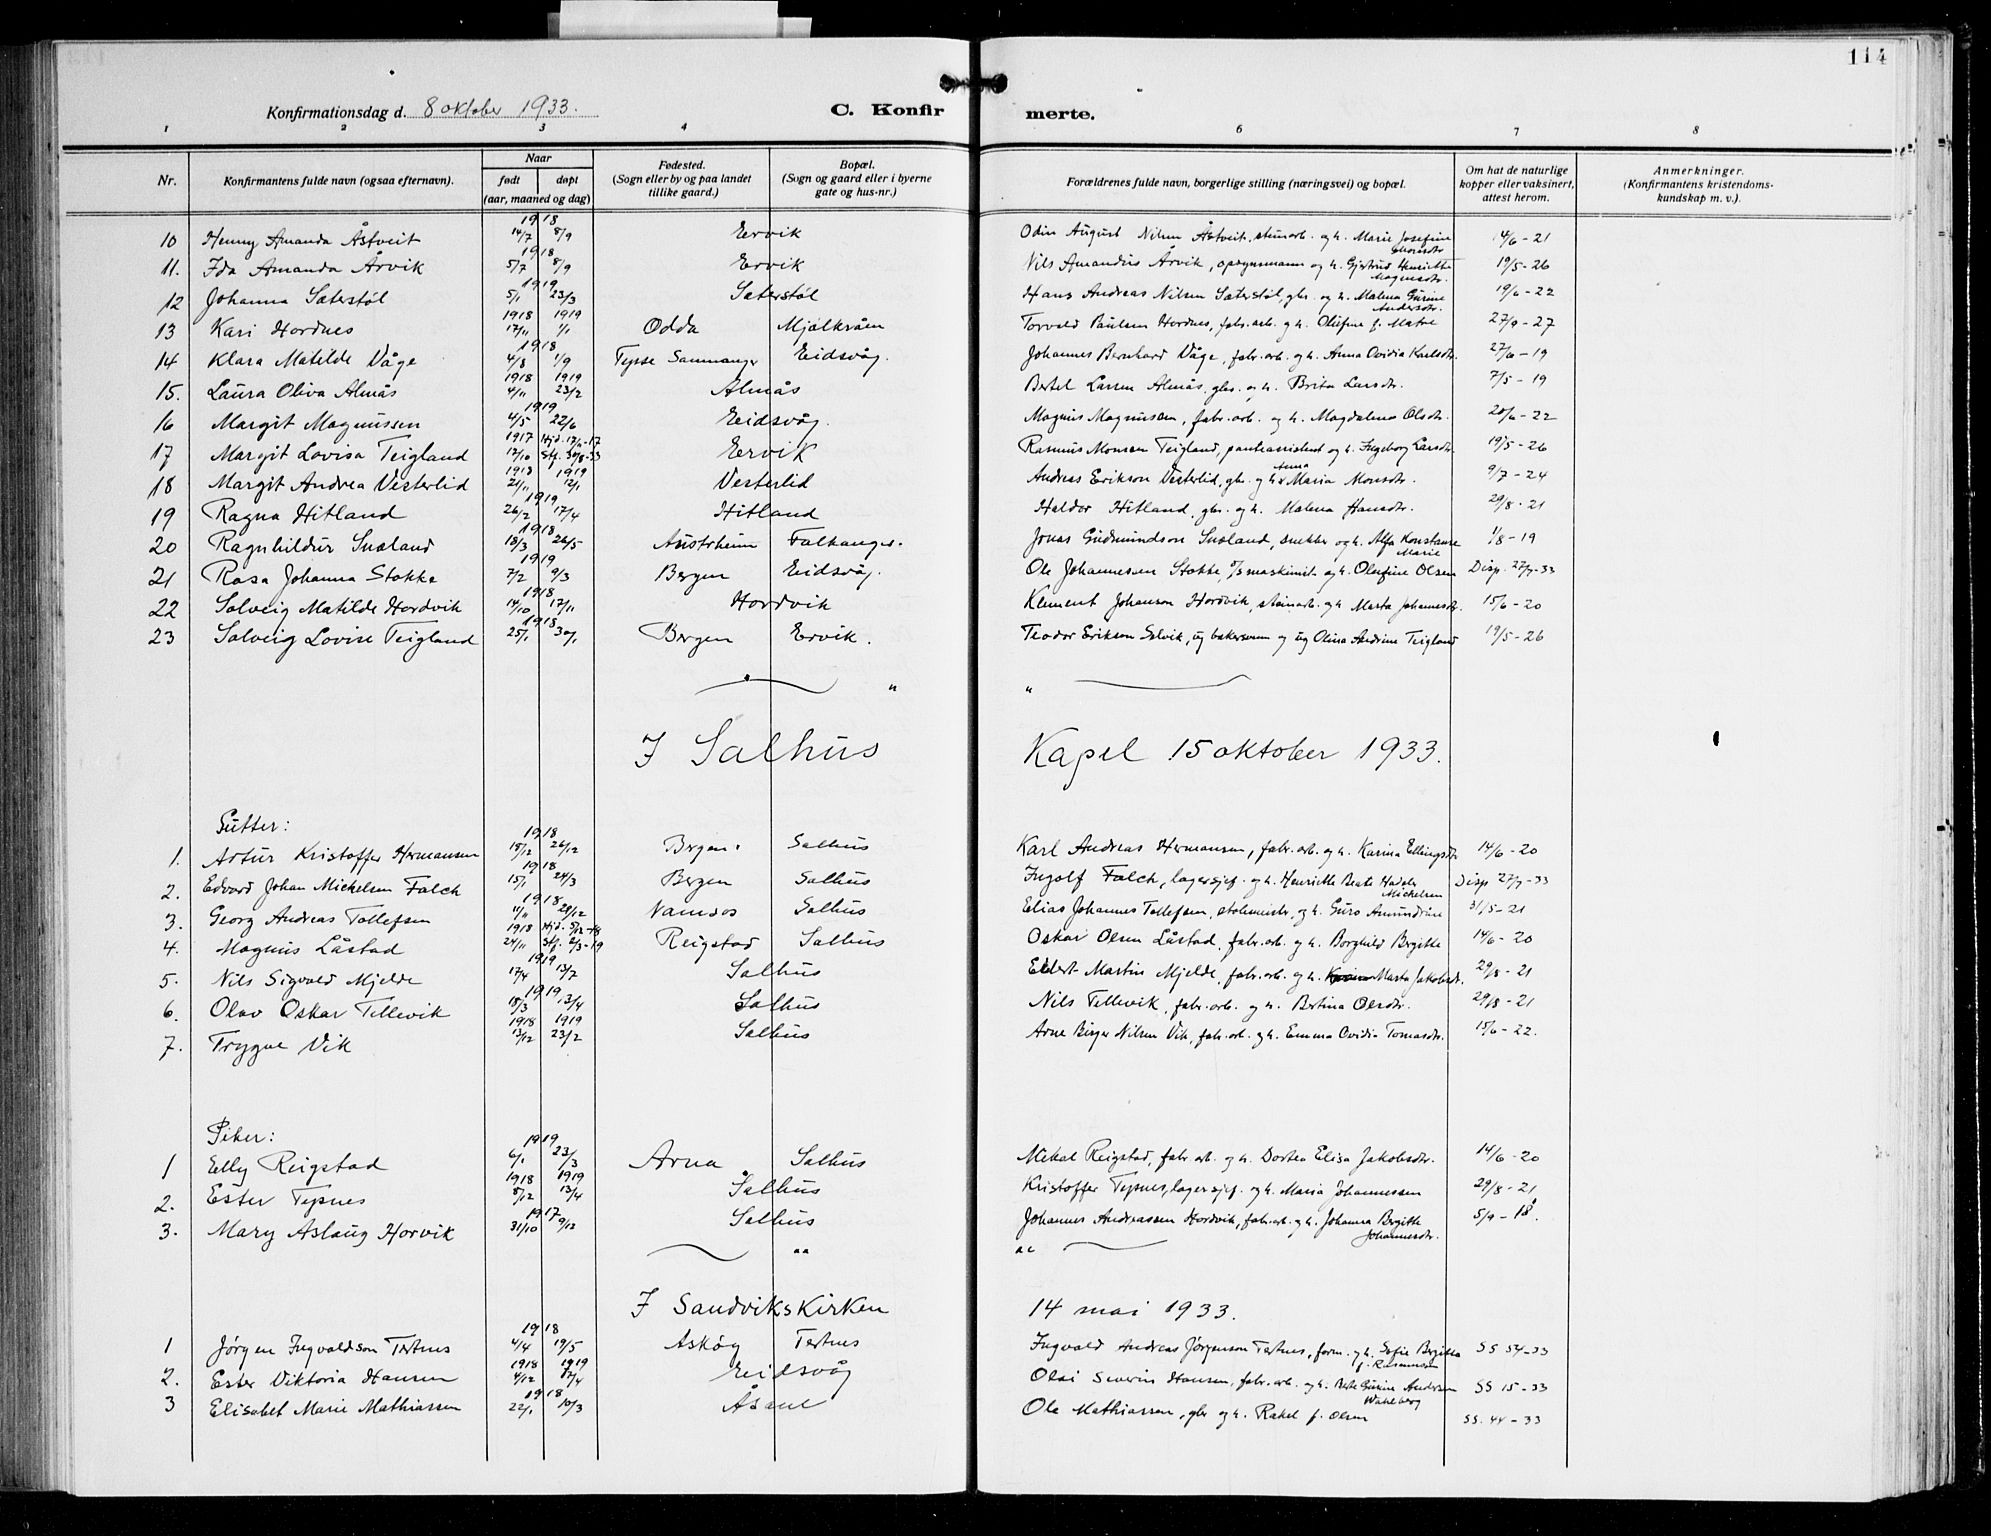 114
Konfirmationsdag d. 8 oktober 1933. C. Konfirmerte.
1 2 3 4 6 7 8
Nr. Konfirmantens fulde navn (ogsaa efternavn). Naar født døpt (aar, maaned og dag) Fødested. (Sogn eller by og paa landet tillike gaard.) Bopæl. (Sogn og gaard eller i byerne gate og hus-nr.) Forældrenes fulde navn, borgerlige stilling (næringsvei) og bopæl. Om hat de naturlige kopper eller vaksinert, attest herom. Anmerkninger. (Konfirmantens kristendomskundskap m. v.).
10 Henny Amanda Åstveit 1918 14/7 8/9 Ervik Odin August Nilsen Åstveit, steinarb. og h. Marie Josefine Monsdtr. 14/6-21
11. Ida Amanda Årvik 1918 5/7 8/9 Ervik Nils Amandus Årvik, opsynsmann og h. Gjertrud Henriette Mogensdtr. 19/5-26
12 Johanna Sæterstøl 1919 5/1 23/3 Sæterstøl Hans Andreas Nilsen Sæterstøl, gbr. og h. Malena Gurine Andersdtr. 19/6-22
13 Kari Hordnes 1918 17/11 1919 1/1 Odda Mjølkråen Torvald Paulsen Hordnes, fabr.arb. og h. Olufine f. Matre 27/9-27
14 Klara Matilde Våge 1918 4/8 1/9 Tysse Samnanger Eidsvåg. Johannes Bernhard Våge, fabr.arb. og h. Anna Ovidia Karlsdtr. 27/6-19
15. Laura Oliva Almås 1918 4/11 1919 23/2 Almås Bertel Larsen Almås, gbr. og h. Brita Larsdtr. 7/5-19
16 Margit Magnussen 1919 4/5 22/6 Eidsvåg. Magnus Magnussen, fabr.arb. og h. Magdalena Olsdtr. 20/6-22
17 Margit Lovisa Teigland 1917 12/10 Hjd. 17/11-17 Stf. 30/8-33 Ervik Rasmus Monsen Teigland, panteassistent og h. Ingeborg Larsdtr. 19/5-26
18 Margit Andrea Vesterlid 1918 21/11 1919 12/1 Vesterlid Andreas Erikson Vesterlid, gbr. og h. Anna Maria Monsdtr. 9/7-24
19 Ragna Hitland 1919 26/2 17/4 Hitland Haldor Hitland, gbr. og h. Malena Hansdtr. 29/8-21
20 Ragnhildur Snæland 1918 18/3 26/5 Austrheim Falkanger. Jonas Gudmundson Snæland, snekker og h. Alfa Konstanse Marie 1/8-19
21 Rosa Johanna Stokke 1919 7/2 9/3 Bergen Eidsvåg. Ole Johannessen Stokke, maskinist og h. Olufine Olsen Disp. 27/7-33
22 Solveig Matilde Hordvik 1918 14/10 17/11 Hordvik Klement Johanson Hordvik, steinarb. og h. Marta Johannesdtr. 15/6-20
23 Solveig Lovise Teigland 1918 25/1 30/1 Bergen Ervik. Teodor Erikson Selvik, ug bakersvenn og ug Olina Andrine Teigland 19/5-26
" "
I Salhus Kapel 15 oktober 1933.
Gutter:
1. Artur Kristoffer Hermansen 1918 18/12 26/12 Bergen. Salhus Karl Andreas Hermansen, fabr.arb. og h. Karina Ellingsdtr 14/6-20
2. Edvard Johan Mickelsen Falch 1918 15/1 24/3 Bergen Salhus Ingolf Falch, lagersjef. og h. Henriette Beate Mickelsen Disp 27/7-33
3. Georg Andreas Tollefsen 1918 11/11 28/12 Namsos Salhus Elias Johannes Tollefsen, stolemester, og h. Guro Amundrine 31/5-21
4. Magnus Låstad 1918 24/11 Hjd. 5/12-18 Stf. 2/3-19 Reigstad Salhus Oskar Olsen Låstad, fabr.arb. og h. Borghild Bergitte 14/6-20
5. Nils Sigvald Mjelde 1919 17/4 13/7 Salhus Eldert Martin Mjelde, fabr.arb. og h. Marta Jakobsdtr. 29/8-21
6. Olav Oskar Tellevik 1919 18/3 13/4 Salhus Nils Tellevik, fabr.arb. og h. Bertina Olsdtr. 29/8-21
7. Trygve Vik 1918 13/12 1919 23/2 Salhus Arne Birger Nilsen Vik, fabr.arb. og h. Emma Ovidia Tomasdtr. 15/6-22.
Piker:
1 Elly Reigstad 1919 6/1 23/3 Arna Salhus Mikal Reigstad, fabr.arb. og h. Dortea Elisa Jakobsdtr. 14/6-20
2. Ester Tepsnes 1918 8/12 1919 13/4 Salhus Kristoffer Tepsnes, lagersjef. og h. Maria Johannessen 29/8-21
3. Mary Aslaug Horvik 1917 31/10 9/12 Salhus Johannes Andreassen Hordvik, fabr.arb. og h. Johanna Bergitte Johannesdtr. 5/9-18.
" "
I Sandvikskirken 14 mai 1933.
1 Jørgen Ingvaldson Tertnes 1918 4/4 19/5 Askøy Tertnes Ingvald Andreas Jørgenson Tertnes, form. og h. Sofie Bergitta f. Rasmussen SS 54-33
2. Ester Viktoria Hansen 1918 4/12 1919 17/4 Eidsvåg Olai Severin Hansen, fabr.arb. og h. Berte Gurine Andersen Wahlberg SS 15-33
3 Elisabet Marie Mathiassen 1918 22/1 10/3 Åsane Ole Mathiassen, gbr og h. Rakel f. Olsen SS. 44-33